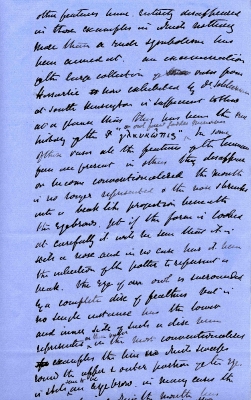 other features have entirely disappeared
in those examples in which nothing
more than a rude symbolism has
been aimed at. An examination
of the large collection of from
Hissarlik now exhibited by Dr Schliemann
at South Kensington is sufficient to show
at a glance that they has been the
history of the γλαυκῶπις. In some
of these vases all the features of the human
face are present in others they disappear
or become conventionalized the mouth
is no longer represented & the nose shrinks
into a beak like projection beneath
the eyebrows. yet if the form is looked
at carefully it will be seen that it is
still a nose and in no case has it been
the intention of the potter to represent a
beak. The eye of an owl is surrounded
by a complete disc of feathers but in
no single instance has the lower
and inner side of such a disc been
represented in the most conventionalized
examples the line which sweeps
round the upper & outer portion of the eye
is still an eyebrow. in many cases the
the mouth has